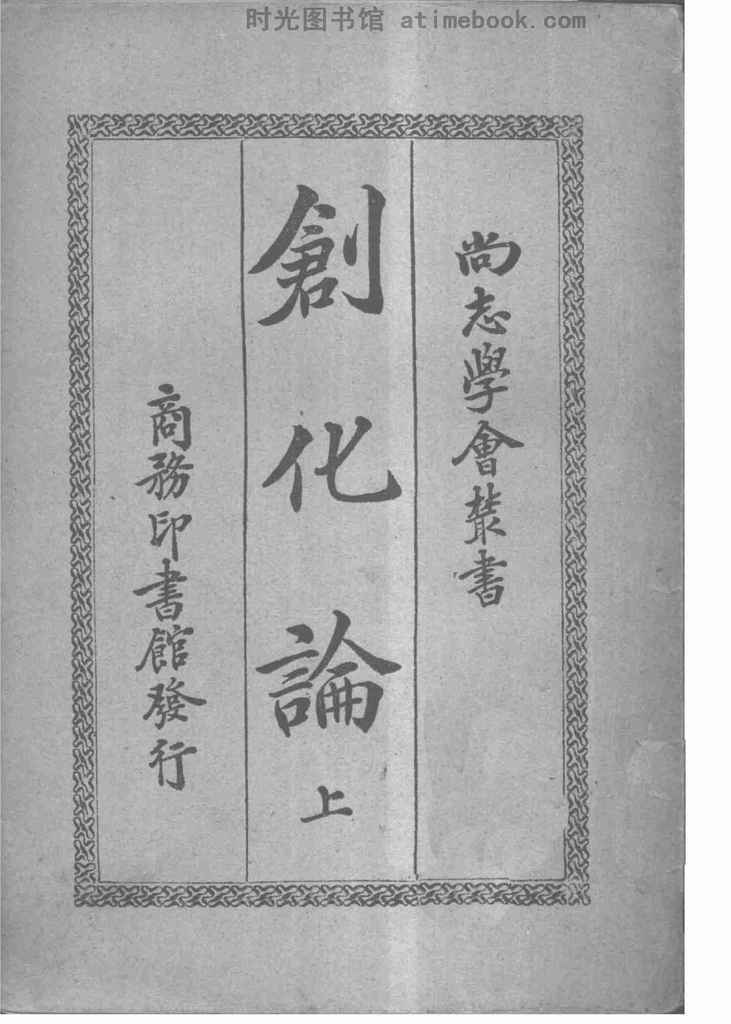 时光图书馆 atimebook.com
尚志學會叢書
創化論
上
商務印書館發行